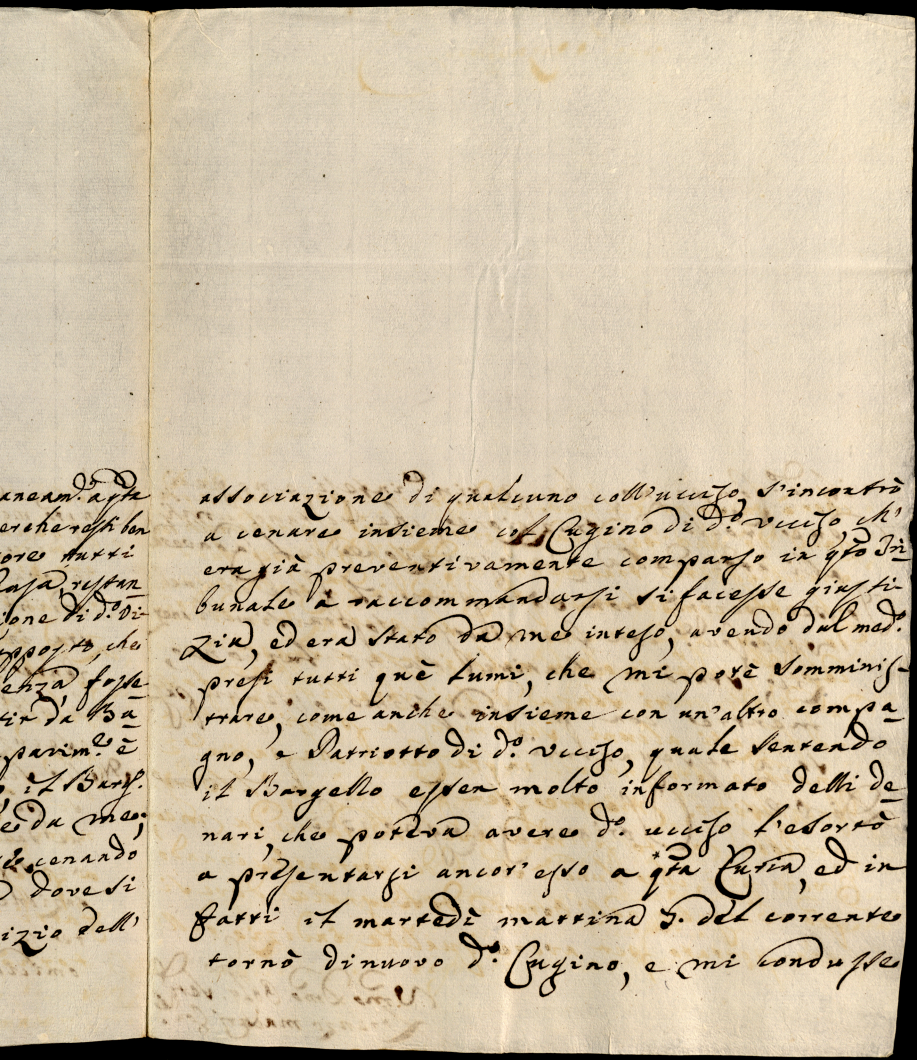 aneam.e a q.ta
erche resti ben
ore tutti
restan=
ione di d.o Vi
pposto, che
enza fosse
tir da Ba=
parim.e è
, il Barg.o
e da me;
cenando
dove si
izio dell'
associazione di qualcuno coll'ucciso, s'incontrò
a cenare insieme col Cugino di d.o ucciso, ch'
era già preventivamente comparso in q.to Tri=
bunale à raccommandarsi si facesse giusti
zia, ed era stato da me inteso, avendo dal med.o
presi tutti què lumi, che mi potè somminis=
trare, come anche insieme con un'altro compa=
gno, e Patriotto di d.o ucciso, quale sentendo
il Bargello esser molto informato delli de=
nari, che poteva avere d.o ucciso l'esortò
a presentarsi ancor'esso a q.ta Curia, ed in
fatti il martedì mattina 3. del corrente
tornò dinuovo d.o Cugino, e mi condusse